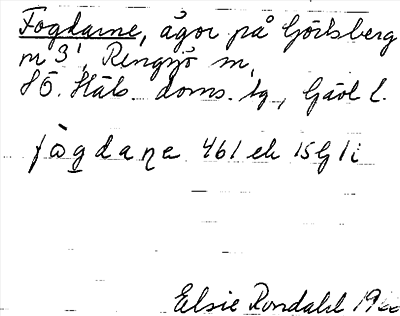 Fogdarne, ägor på Görlsberg
m 3', Rengsjö sn,
SÖ. Häls. doms. tg, Gävl l.
fògdaṇe 461 ek 15G1i
Elsie Rondahl 19